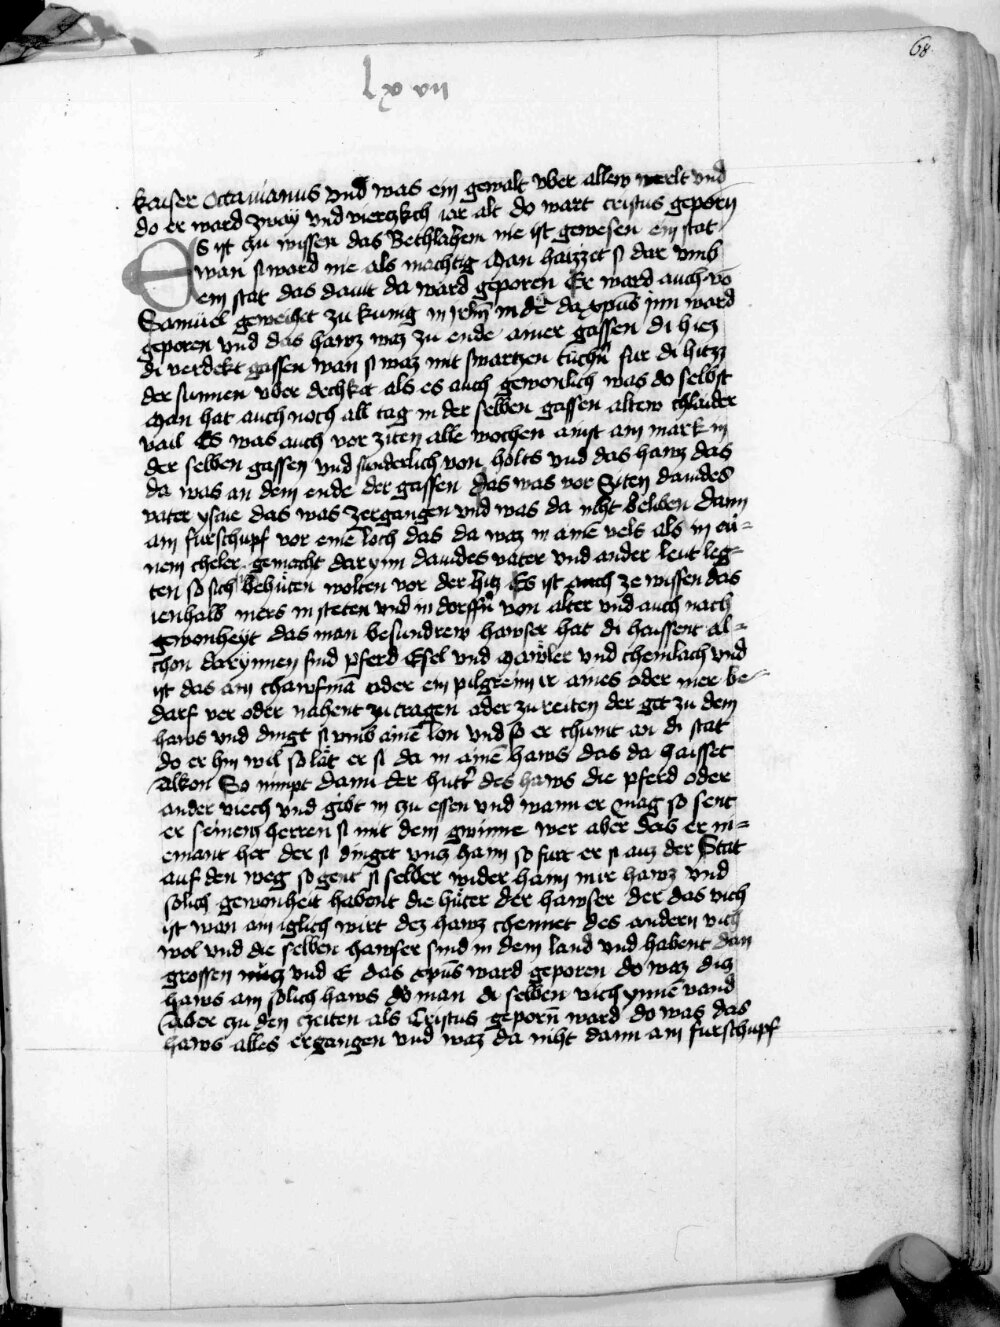 68
lxvii
kaiser Octauianus vnd was ein gewalt vber allew werlt vnd
do er ward zway vnd viertzkch iar alt do wart cristus geporn
ES ist czu wissen das Bethlahem nie ist gewesen ein stat
wan si ward nie als machtig Man haizzet si dar vmb
ein stat das dauit da ward geporen Er ward auch võ
Samuel geweihet zu kunig in jrlm̃ in der da xpũs inn ward
geporen vnd das hawz waz zu ende ainer gassen di hiez
di verdekt gassen wan si waz mit swartzen tuchñ fur di hitzz
der sunnen vber dechket als es auch gewonlich was do selbst
Man hat auch noch all tag in der selben gassen altew chlaider
vail Es was auch vor ziten alle wochen ainst am mark in
der selben gassen vnd sunderlich von holts vnd das hawz das
da was an dem ende der gassen das was vor Ziten dauides
vater ysaie das was zergangen vnd was da niht beliben dann
am furschupf vor eine loch das da waz in aine vels als in ai=
nem cheler gemacht darynn dauides vater vnd ander leut leg=
ten so sich behuten wolten vor der hitz Es ist auch ze wissen das
ienhalb mers in steten vnd in dorffñ von alter vnd auch nach
gewonheyt das man besundrew hawser hat di haissent al=
chon darynnen sind pferd Esel vnd Mawler vnd chemlach vnd
ist das ain chawfmã oder ein pilgreim ir aines oder mer be=
darf ver oder nahent zu tragen oder zu reiten der get zu dem
haws vnd dingt si vmb ainẽ lon vnd so er chumt an di stat
do er hin wil so lat er si da in ainẽ haws das da haisset
Alkon So nimpt dann der huter des haws die pferd oder
ander viech vnd gibt in czu essen vnd wann er mag so sent
er seinem herren si mit dem gwinne wer aber das er ni=
emant het der si dinget vncz haim so furt er si auz der Stat
auf den weg so gent si selber wider haim in ir hawz vnd
solich gewonheit habent die huter der hawser der das vich
ist wan ain iglich wirt dez hawz chennet des andern vich
wol vnd die selben hawser sind in dem land vnd habent dan
grossen nucz vnd E das xpũs ward geporen do waz dicz
haws ain solich haws do man di selben vich ynnẽ vand
Aber czu den czeiten als Cristus geporñ ward do was das
haws alles ergangen vnd waz da niht dann ain furschupf